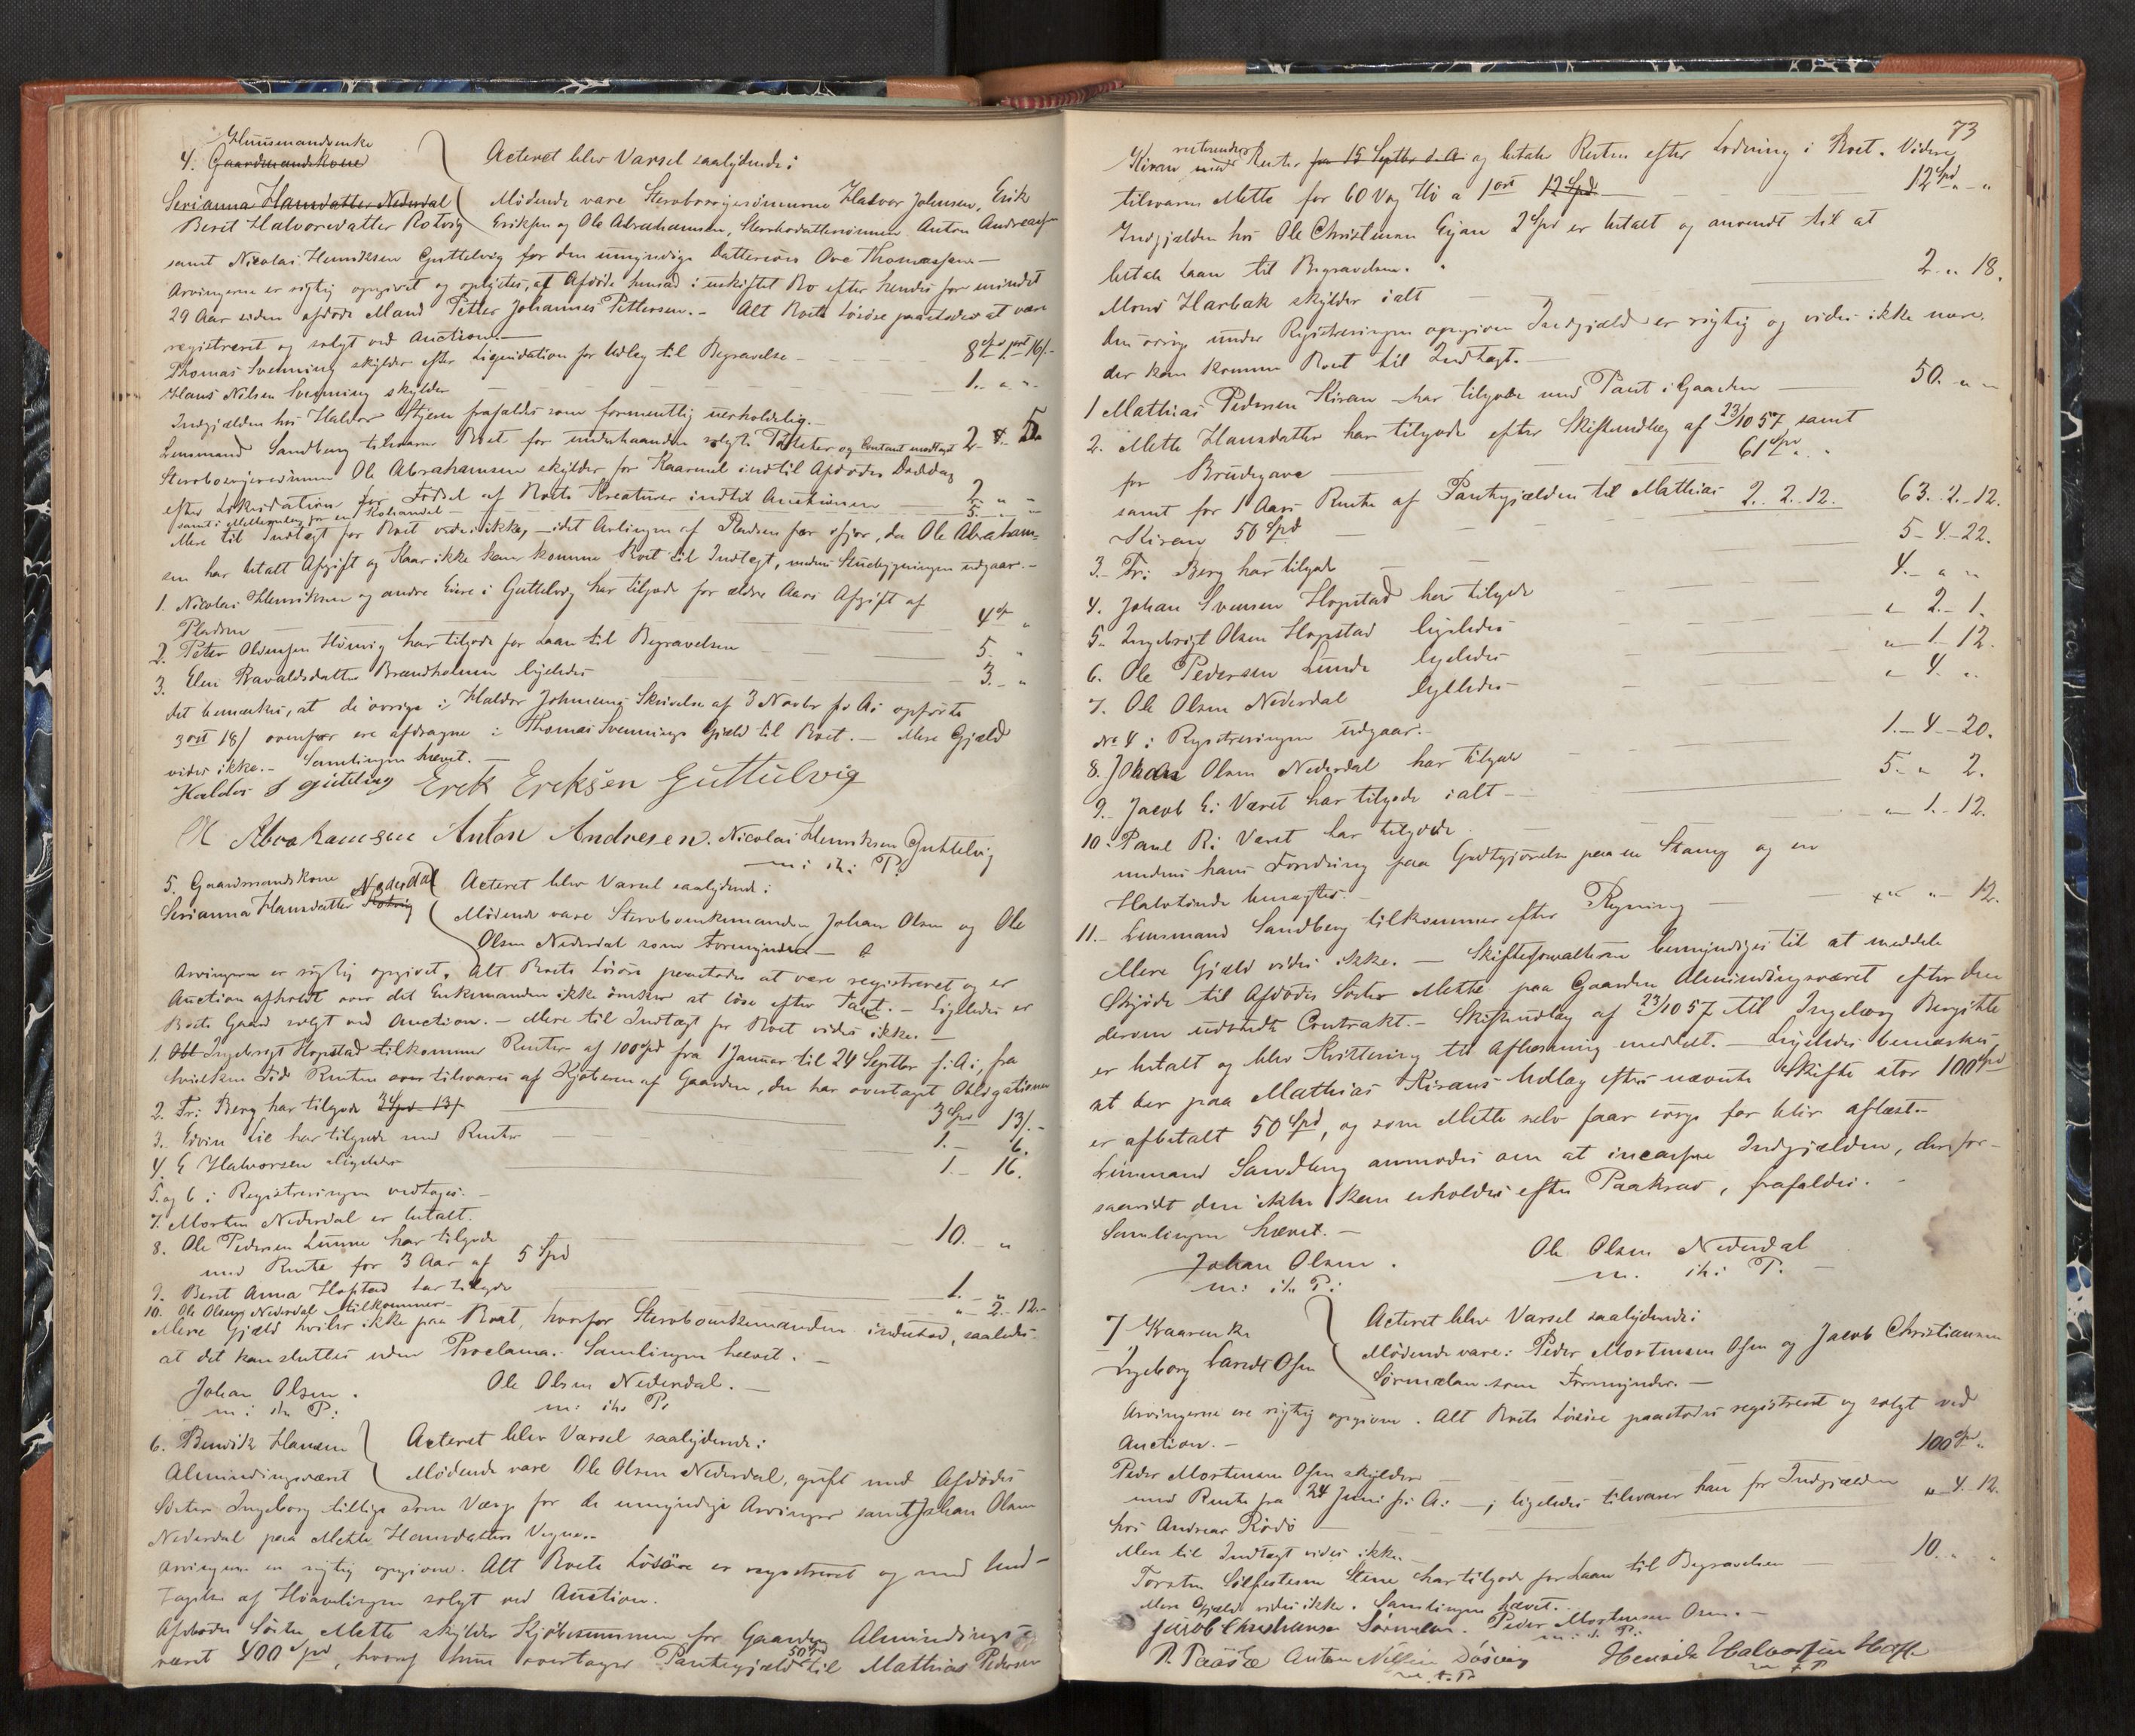 Huusmandsenke
4. Gaardmandskone
Serianna Hansdatter Nederdal
Beret Halvorsdatter Rotvig
Acteret blev Varsel saalydende:
Mødende vare Stervboesvigersønnerne Halvor Johnsen, Erik
Eriksen og Ole Abrahamsen, Stervbodattersønnen Anton Andreasen
samt Nicolai Henriksen Guttelvig for den umyndige Dattersøn Ove Thomassen.-
Arvingerne er rigtig opgivet og oplystes, at Afdøde hensad i uskiftet Bo efter hendes for mindst
29 Aar siden afdøde Mand Petter Johannes Pettersen. - Alt Boets Løsøre paastodes at være
registreret og solgt ved Auction.-
Thomas Svenning skylder efter Liquidation for Udlæg til Begravelse - 8 Spd 1 ort 16/-
Hans Nilsen Svenning skylder 1. " ".
Indgjælden hos Halvor Stjern frafaldes som formentlig uerholdelig.-
Lensmand Sandberg tilsvarer Boet for underhaanden solgte Potteter og Contant modtaget 2 4 5.
Stervboesvigersønnen Ole Abrahamsen skylder for Kaarmel indtil Afdødes Dødsdag
efter Likvidation for Fødsel af Boets Kreaturer indtil Auctionen 2. " "
samt i Mellemgivt for en Kohandel - 5. " "
Mere til Indtægt for Boet vides ikke, - idet Avlingen af Pladsen for ifjor, da Ole Abraham-
sen har betalt Afgift og Kaar ikke kan komme Boet til Indtægt, medens Stuebygningen udgaar.-
1. Nicolai Henriksen og andre Eiere i Guttelvig har tilgode for ældre Aars Afgift af
Pladsen 4 Sp "
2. Peter Olvensen Hinvig har tilgode for Laan til Begravelsen 5. "
3. Elen Ravaldsdatter Brandholmen ligeledes 3. "
Det bemærkes, at de øvrige i Haldor Johnsens Skrivelse af 3 Novbr f. A. opførte
3 ort 18/ ovenfor ere afdragne i Thomas Svennings Gjæld til Boet. - Mere Gjæld
vides ikke.- Samlingen hævet. -
Haldor J guttelvig Erek Ereksen Guttulvig
Ol Abrahamsen Anton Andresen. Nicolai Henriksen Guttelvig
m: ih: P:
5. Gaardmandskone
Serianna Hansdatter Rotvig Nederdal
Acteret blev Varsel saalydende:
Mødende vare Stervboenkemanden Johan Olsen og Ole
Olsen Nederdal som Formynder. -
Arvingerne er rigtig opgivet. Alt Boets Løsøre paastodes at være registreret og er
Auction afholdt over det Enkemanden ikke ønsker at løse efter Taxt. - Ligeledes er
Boets Gaard solgt ved Auction. - Mere til Indtægt for Boet vides ikke. -
1. Obl Ingebrigt Hopstad tilkommer Renter af 100 Spd fra 1 Januar til 24 Septbr f: A:, fra
hvilken Tid Renten over tilsvares af Kjøberen af Gaarden, der har overtaget Obligationen
2. Fr: Berg har tilgode 3 Spd 13/ 3 Spd 13/.-
3. Eivin Lie har tilgode med Renter 1. - 6.
4. E Halvorsen ligeledes 1. - 16.
5. og 6 i Registreringen vedtages. -
7. Morten Nederdal er betalt.
8. Ole Pedersen Lunne har tilgode
med Rente for 3 Aar af 5 Spd 10. "
9. Berit Anna Hopstad har tilgode 1. - "
10. Ole Olsen Nederdal tilkommer - " 2. 12.-
Mere Gjæld hviler ikke paa Boet, hvorfor Stervboenkemanden indestod, saaledes
at det kan sluttes uden Proclama. Samlingen hævet. -
Johan Olsen. Ole Olsen Nederdal. -
m: ih P: m: ih: P:
6. Bendik Hansen
Almindingsværet
Acteret blev Varsel saalydende:
Mødende vare Ole Olsen Nederdal, gift med Afdødes
Søster Ingeborg tillige som Værge for de umyndige Arvinger samt Johan Olsen
Nederdal paa Mette Hansdatters Vegne.-
Arvingerne er rigtig opgivne. Alt Boets Løsøre er registreret og med Und-
tagelse af Høavlingen solgt ved Auction.
Afdødes Søster Mette skylder Kjøbesummen for Gaarden Almindings-
været 400 Spd, hvoraf hun overtager Pantegjæld 50 Spd til Mathias Pedersen
73
Kiran med resterende Renter fra 15 Septbr d. A. og betaler Renten efter Lodning i Boet. Videre
tilsvarer Mette for 60 Vog Hø a 1 ort 12 Spd 12 Spd " "
Indgjælden hos Ole Christensen Eijan 2 Spd er betalt og anvendt til at
betale Laan til Begravelsen.
Mons Harbak skylder ialt 2. " 18.
Den øvrige under Registreringen opgivne Indgjæld er rigtig og vides ikke mere,
der kan komme Boet til Indtægt. -
1 Mathias Pedersen Kiran har tilgode med Pant i Gaarden 50. " "
2. Mette Hansdatter har tilgode efter Skifteudlæg af 23/10 57, samt
for Brudegave 61 Spd " "
samt for 1 Aars Rente af Pantegjælden til Mathias
Kiran 50 Spd 2. 2. 12. 63. 2. 12.
3. Fr: Berg har tilgode 5 - 4. - 22.
4. Johan Svensen Hopstad har tilgode 4. - " "
5. Ingebrigt Olsen Hopstad ligeledes " 2. - 1.
6. Ole Pedersen Lunde ligeledes " 1 - 12.
7. Ole Olsen Nederdal ligeledes " 4. "
No 4 i Registreringen udgaar.-
8. Johan Olsen Nederdal har tilgode 1. - 4. - 20.
9. Jacob E: Været har tilgode ialt - 5. " 2.
10. Paul R: Været har tilgode " 1. - 12.
medens hans Fordring paa Godtgjørelse paa en Stamp og en
Halvtønde benægtes.
11. Lensmand Sandberg tilkommer efter Regning " " 12.
Mere Gjæld vides ikke. - Skifteforvalteren bemyndiges til at meddele
Skjøde til Afdødes Søster Mette paa Gaarden Almindingsværet efter den
derom udstedte Contrakt. - Skifteudlæg af 23/10 57 til Ingeborg Bergitte
er betalt og blev Kvittering til Aflæsning meddelt. - Ligeledes bemærkes
at der paa Mathias Kirans Udlæg efter nævnte Skifte stor 100 Spd
er afbetalt 50 Spd, og som Mette selv faar sørge for blir aflæst.-
Lensmand Sandberg anmodes om at incassere Indgjælden, der, for-
saavidt den ikke kan erholdes efter Paakrav, frafaldes. -
Samlingen hævet. -
Johan Olsen. Ole Olsen Nederdal
m: ih: P: m. ih: P.
7 Kaarenke
Ingeborg Larsdt Osen
Acteret blev Varsel saalydende:
Mødende vare: Peder Mortensen Osen og Jacob Christiansen
Sørmelan som Formynder. -
Arvingerne ere rigtig opgivne. Alt Boets Løsøre paastodes registreret og solgt ved
Auction. -
Peder Mortensen Osen skylder 100 Spd "
med Rente fra 24 Juni f: A: -; ligeledes tilsvarer han for Indgjælden
hos Andreas Rødø " 4. 12.
Mere til Indtægt vides ikke.
Torsten Sølfestersen Stene har tilgode for Laan til Begravelsen 10. " "
Mere Gjæld vides ikke. Samlingen hævet.
Jacob Christiansen Sørmelan. Peder Mortensen Osen. -
m: ih: P:
P. Paaske Anton Nilsen Henrik Halvorsen
m. i. P.